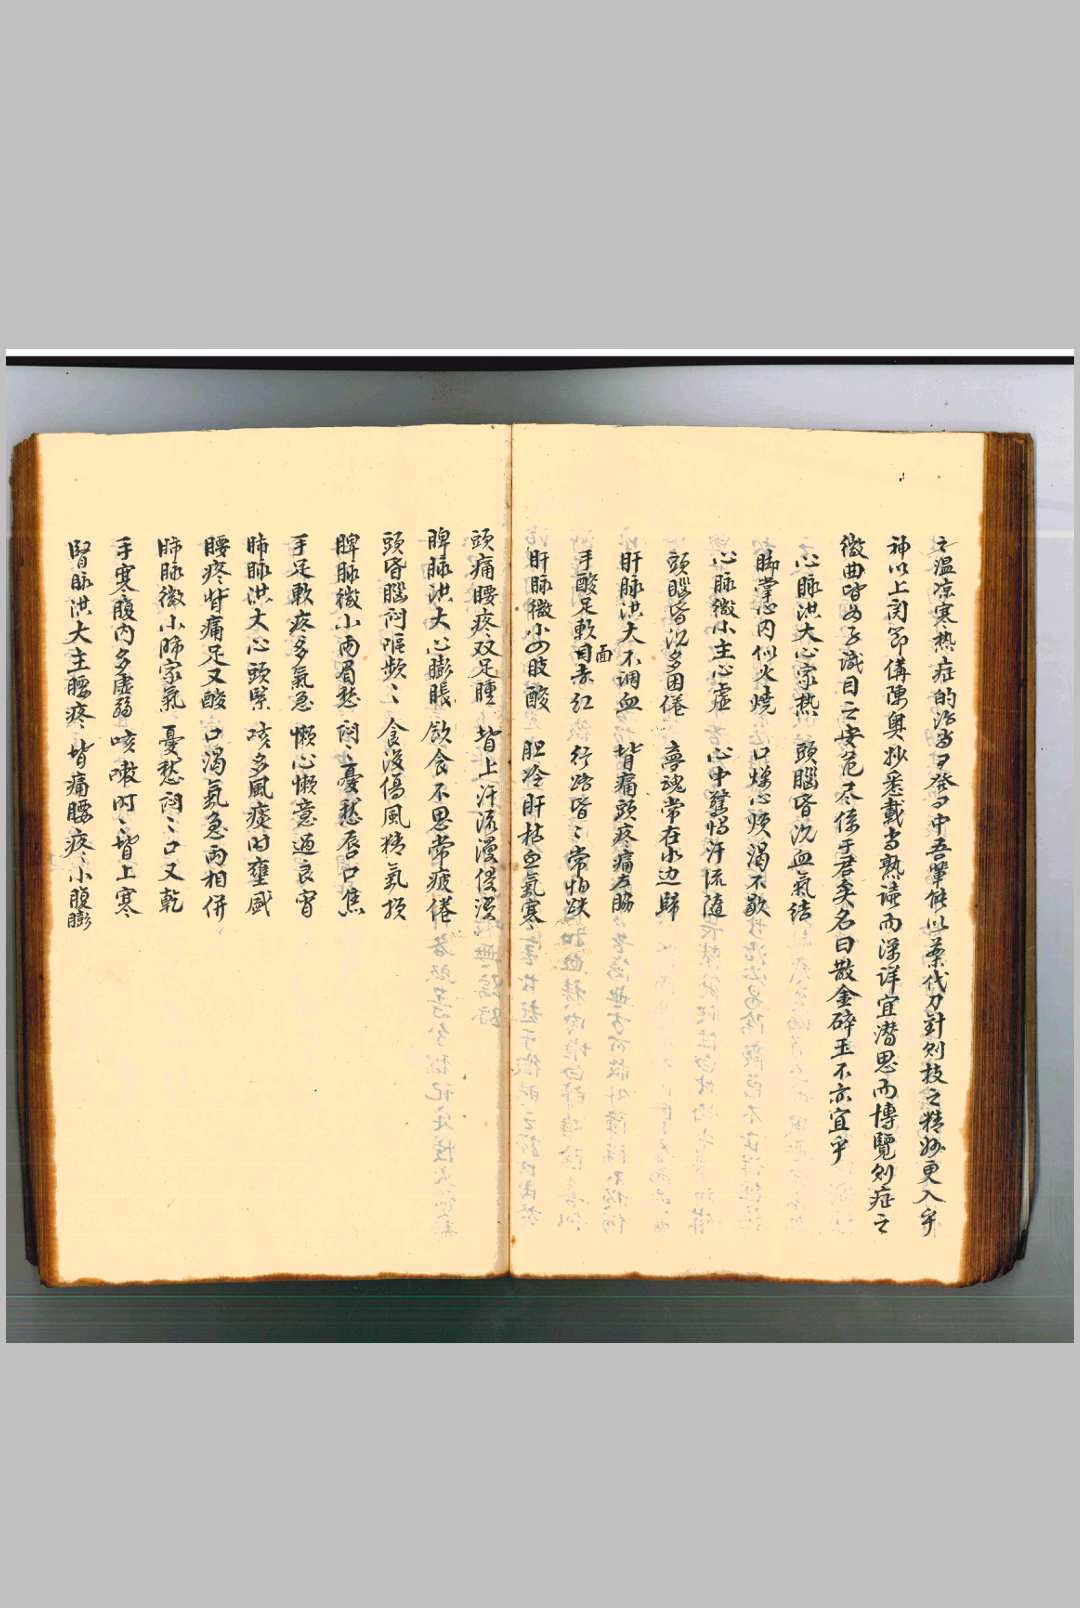 之温凉寒热症的治当日登日中吾軰能以薬代刀針則技之精妙更入乎
神以上諸節備陳奥妙悉載当熟読而深详宜潜思而博覽则症之
微曲皆如子識目之安危尽係于君矣名曰散金碎玉不亦宜乎
心脉洪大心家热 頭腦昏沉血氣结
脚掌心内似火燒 口燥心煩渴不歇
心脉微小主心虚 心中驚惕汗流随
頭腦昏沉多困倦 夢魂常在水边歸
肝脉洪大不调血 背痛頭疼痛左脇
手酸足軟目面赤红 行路昏〻常怕跌
肝脉微小四肢酸 胆冷肝枯血氣寒
頭痛腰疼双足腫 背上汗流漫侵漫
脾脉洪大心膨脹 飲食不思常疲倦
頭昏腦闷嘔頻〻 食後傷風精氣损
脾脉微小两眉愁 闷〻憂愁唇口焦
手足軟疼多氣急 懒心懒意過良宵
肺脉洪大心頭緊 咳多風痰时壅盛
腰疼背痛足又酸 口渴氣急两相併
肺脉微小肺家氣 憂愁闷〻口又乾
手寒腹内多虚弱 咳嗽时〻背上寒
腎脉洪大主腰疼 背痛腰疼小腹膨